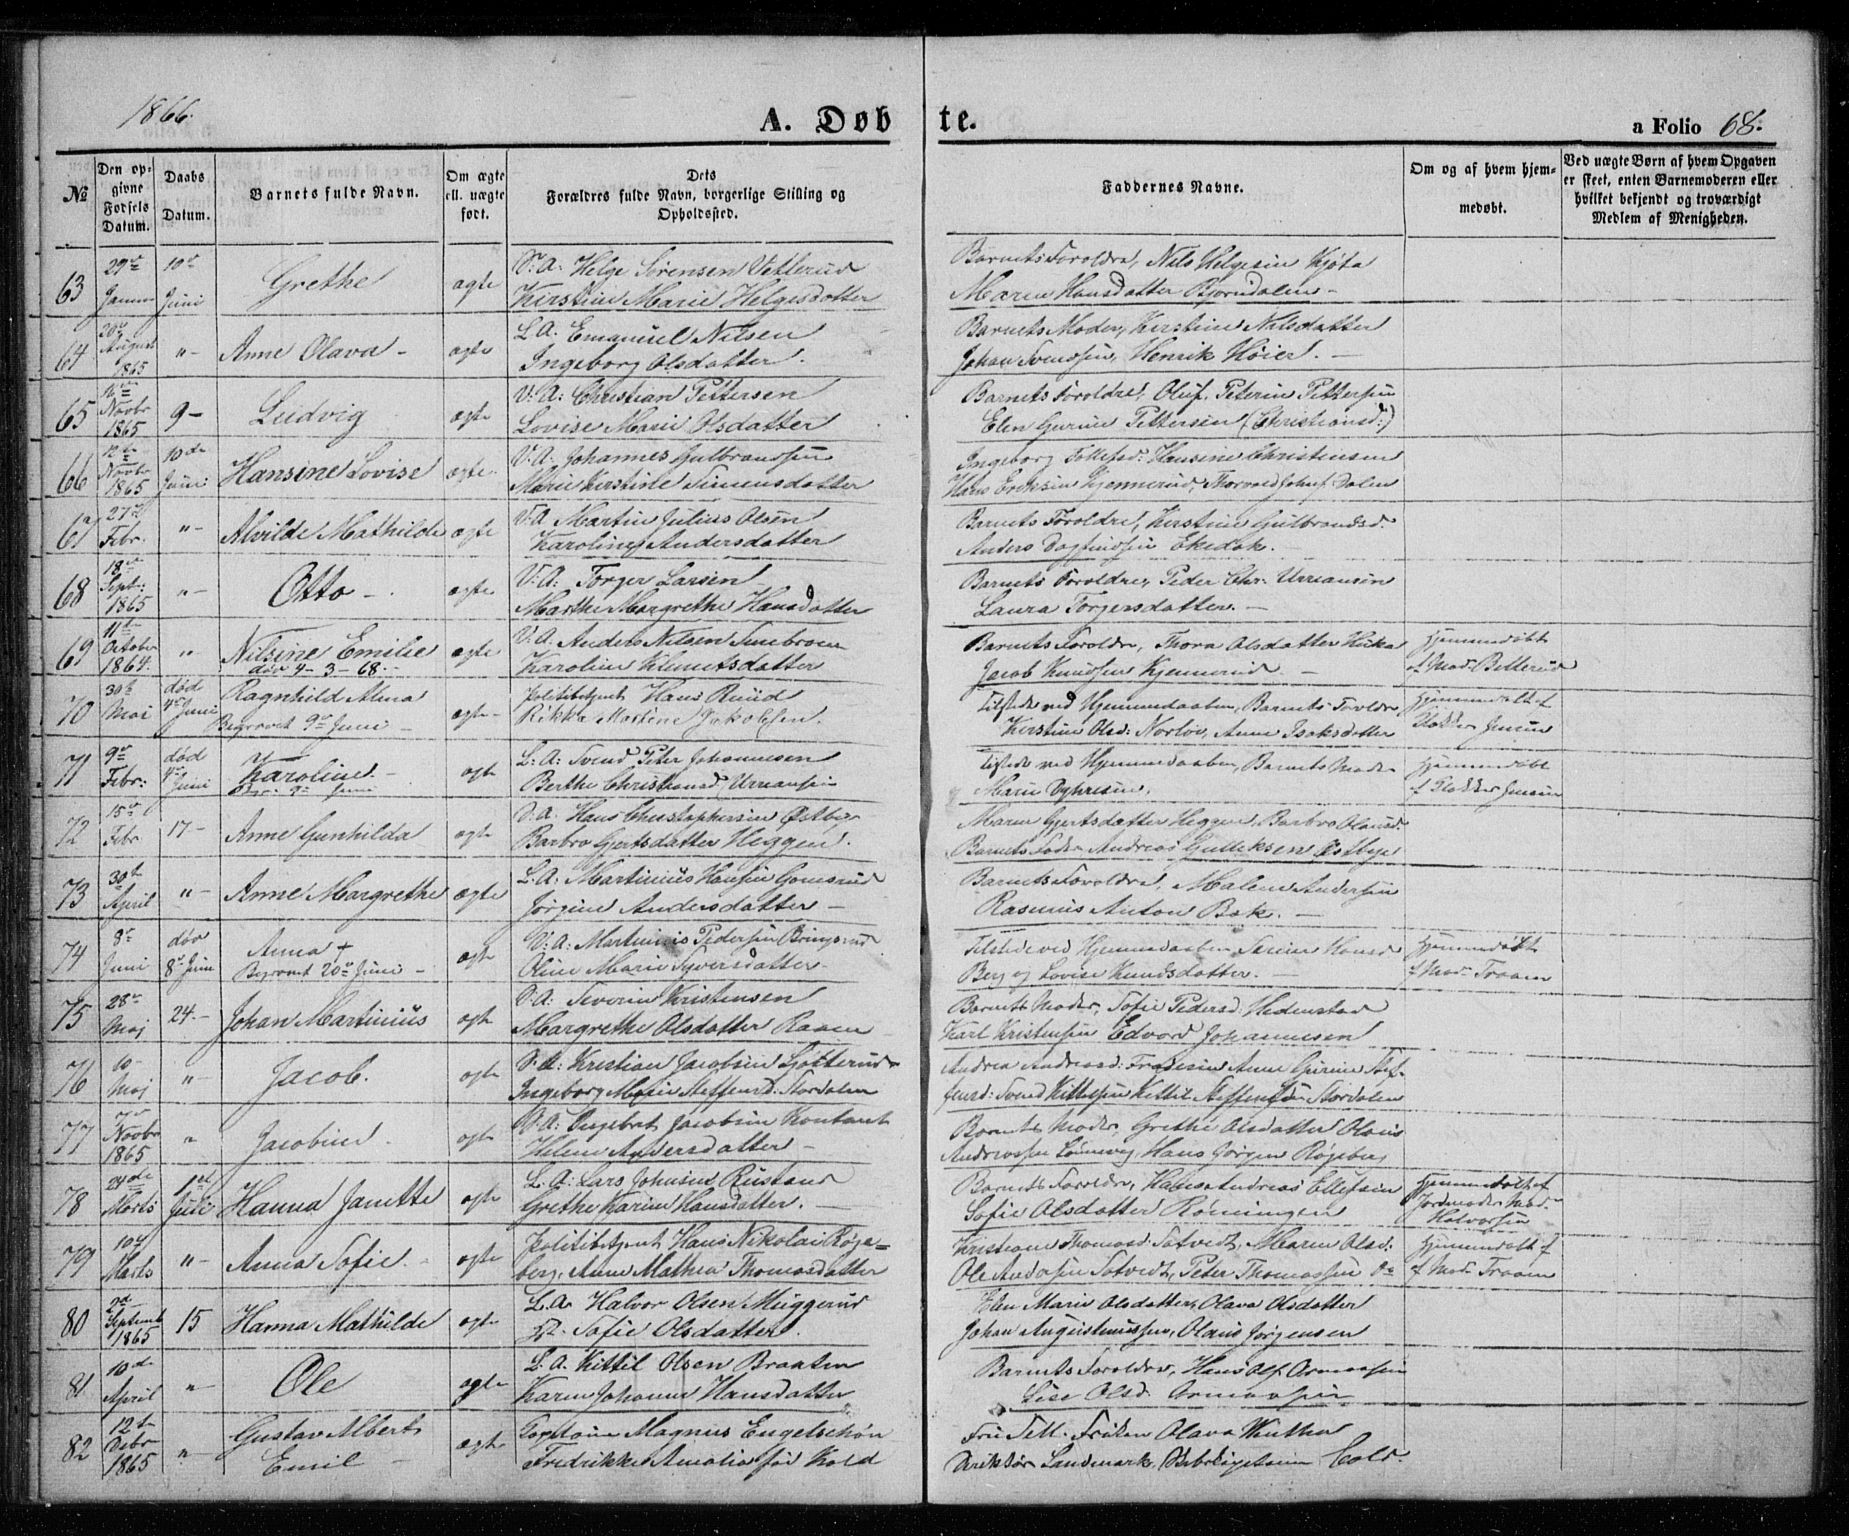 1866.
A. Døbte.
a Folio 68.
No
Den opgivne Fødsels Datum.
Daabs Datum.
Barnets fulde Navn.
Om ægte ell. uægte født.
Dets Forældres fulde Navn, borgerlige Stilling og Opholdssted.
Faddernes Navne.
Om og af hvem hjemmedøbt.
Ved uægte Børn af hvem Opgaven er skeet, enten Barnemoderen eller hvilket bekjendt og troværdigt Medlem af Menigheden.
63 29de Januar 10de Juni Grethe ægte
S.A. Helge Sørensen Vetterud
Kirstine Marie Helgesdatter
Barnets Foroldre, Nils Helgesen Kjøta
Maren Hansdatter Bjørndalen
64 20de August 1865 "- Anne Olava - ægte
L.A. Emanuel Nilsen
Ingeborg Olsdatter.
Barnets Moder, Kirstine Nilsdatter
Johan Svendsen, Henrik Høier. -
65 16de Novbr 1865 9- Ludvig ægte
V.A. Christian Pettersen
Lovise Marie Olsdatter
Barnets Foroldre, Oluf, Peterin Pettersen
Elen Gurine Pettersen (Christiansd:)
66 12te Novbr 1865 10de Juni Hansine Lovise ægte
V.A. Johannes Gulbrandsen
Marie Kirstine Simensdatter
Ingeborg Tollefsd: Hansine Christensen
Hans Eriksen Kjennerud, Thorvald Johns Dalen
67 27de Febr. "- Alvilde Mathilde ægte
V.A. Martin Julius Olsen
Karoline Andersdatter
Barnets Foroldre, Kirstine Gulbrandsd.
Anders Dagfindsen Ekedok.
68 18de Septr. 1865 "- Otto - ægte
V.A. Torger Larsen
Marthe Margrethe Hansdatter
Barnets Foroldre, Peder Chr: Urriansen
Laura Torgersdatter. -
69 11te October 1864. "- Nilsine Emilie ægte
død 4-3-68.
V.A. Anders Nilsen
Karoline Klemetsdatter
Barnets Foroldre, Thora Olsdatter
Jacob Knudsen Kjennerud -
Hjemmedøbt
af Mad. Betterud
70 30te Maj død 4de Juni Ragnhild Alma ægte
Begravet 9de Juni -
Politibetjent Hans Ruud
Rikka Martine Jakobsen.
Tilstede ved Hjemmedaaben, Barnets Foroldre,
Kirstine Olsd: Norløv, Anne Isaksdatter
Hjemmedøbt af
Klokker Jensen
71 9de Febr. død 4de Juni Karoline. - ægte
Begr. 9de Juni
L.A. Svend Peter Johannesen
Berthe Christiansd. Urriansen
Tilstede ved Hjemmedaaben, Barnets Moder
Marie
Hjemmedøbt
af Klokker Jensen
72 15de Febr 17- Anne Gunhilda ægte
V.A. Hans Christophersen Østby
Barbro Gjertsdatter Heggen.
Maren Gjertsdatter Heggen, Barbro Olausd.
Barnets Fader Andreas Gulleksen Østbye
73 30te April "- Anne Margrethe ægte
L.A. Martinius Hansen Gomsrud
Jørgine Andersdatter -
Barnets Foroldre, Malene Andersen
Rasmus Anton Bak. -
74 8de Juni død 8de Juni Anna + ægte
Begravet 20de Juni -
V.A. Martinius Pedersen Bringsrud
Oline Marie Syversdatter -
Tilstede ved Hjemmedaaben Hansd.
Berg og Lovise Knudsdatter. -
Hjemmedøbt
af Mad. Traaen
75 28de Maj 24.- Johan Martinius ægte
V.A. Severin Kristensen
Margrethe Olsdatter Raaen
Barnets Moder, Sofie Pedersd: Hedenstad
Karl Kristensen Edvard Johannesen
76 10 Maj "- Jacob. ægte
S.A. Kristian Jacobsen
Ingeborg Marie Steffensd: Stordalen
Andrea Andreasd: Anne Gurine Stef-
fensd: Svend Kittilsen Kittil Steffensen Stordalen
77 Novbr 1865 " Jacobine. ægte
V.A. Engebret Jacobsen
Helene Andersdatter -
Barnets Moder, Grethe Olsdatter Olaus
Andreassen, Hans Jørgen Røgeberg
78 24de Marts 1ste Juli Hanna Janette ægte
L.A. Lars Johnsen Rustand
Grethe Karine Hansdatter.
Barnets Foroldre, Hans Andreas Ellefsen
Sofie Olsdatter Rønningen
Hjemmedøbt af
Jordmoder Mad.
Halvorsen
79 10de Marts "- Anna Sofie - ægte
Politibetjent Hans Nikolai Røge-
berg, Anne Mathea Thomasdatter
Kristiane Thomasd: Sotvedt, Maren Olsd:
Ole Andersen Sotvedt, Peter Thomassen do
Hjemmedøbt af
af Mad. Traaen
80 2den Septemb 1865 15 Hanna Mathilde ægte
L.A. Halvor Olsen Muggerud
Sofie Olsdatter.
Elen Marie Olsdatter, Olava Olsdatter
Johan Augustinussen, Olaus Jørgensen
81 10de April " Ole ægte
L.A. Kittil Olsen Braaten
Karen Johanne Hansdatter
Barnets Foroldre, Hans Olf
Lise Olsd.
82 12te Debr 1865 " Gustav Albert Emil - ægte
Magnus Engelschøn
Fredrikke Amalie fød Kold
Fru Frøken Olava
Direktør Landmark, Cold.